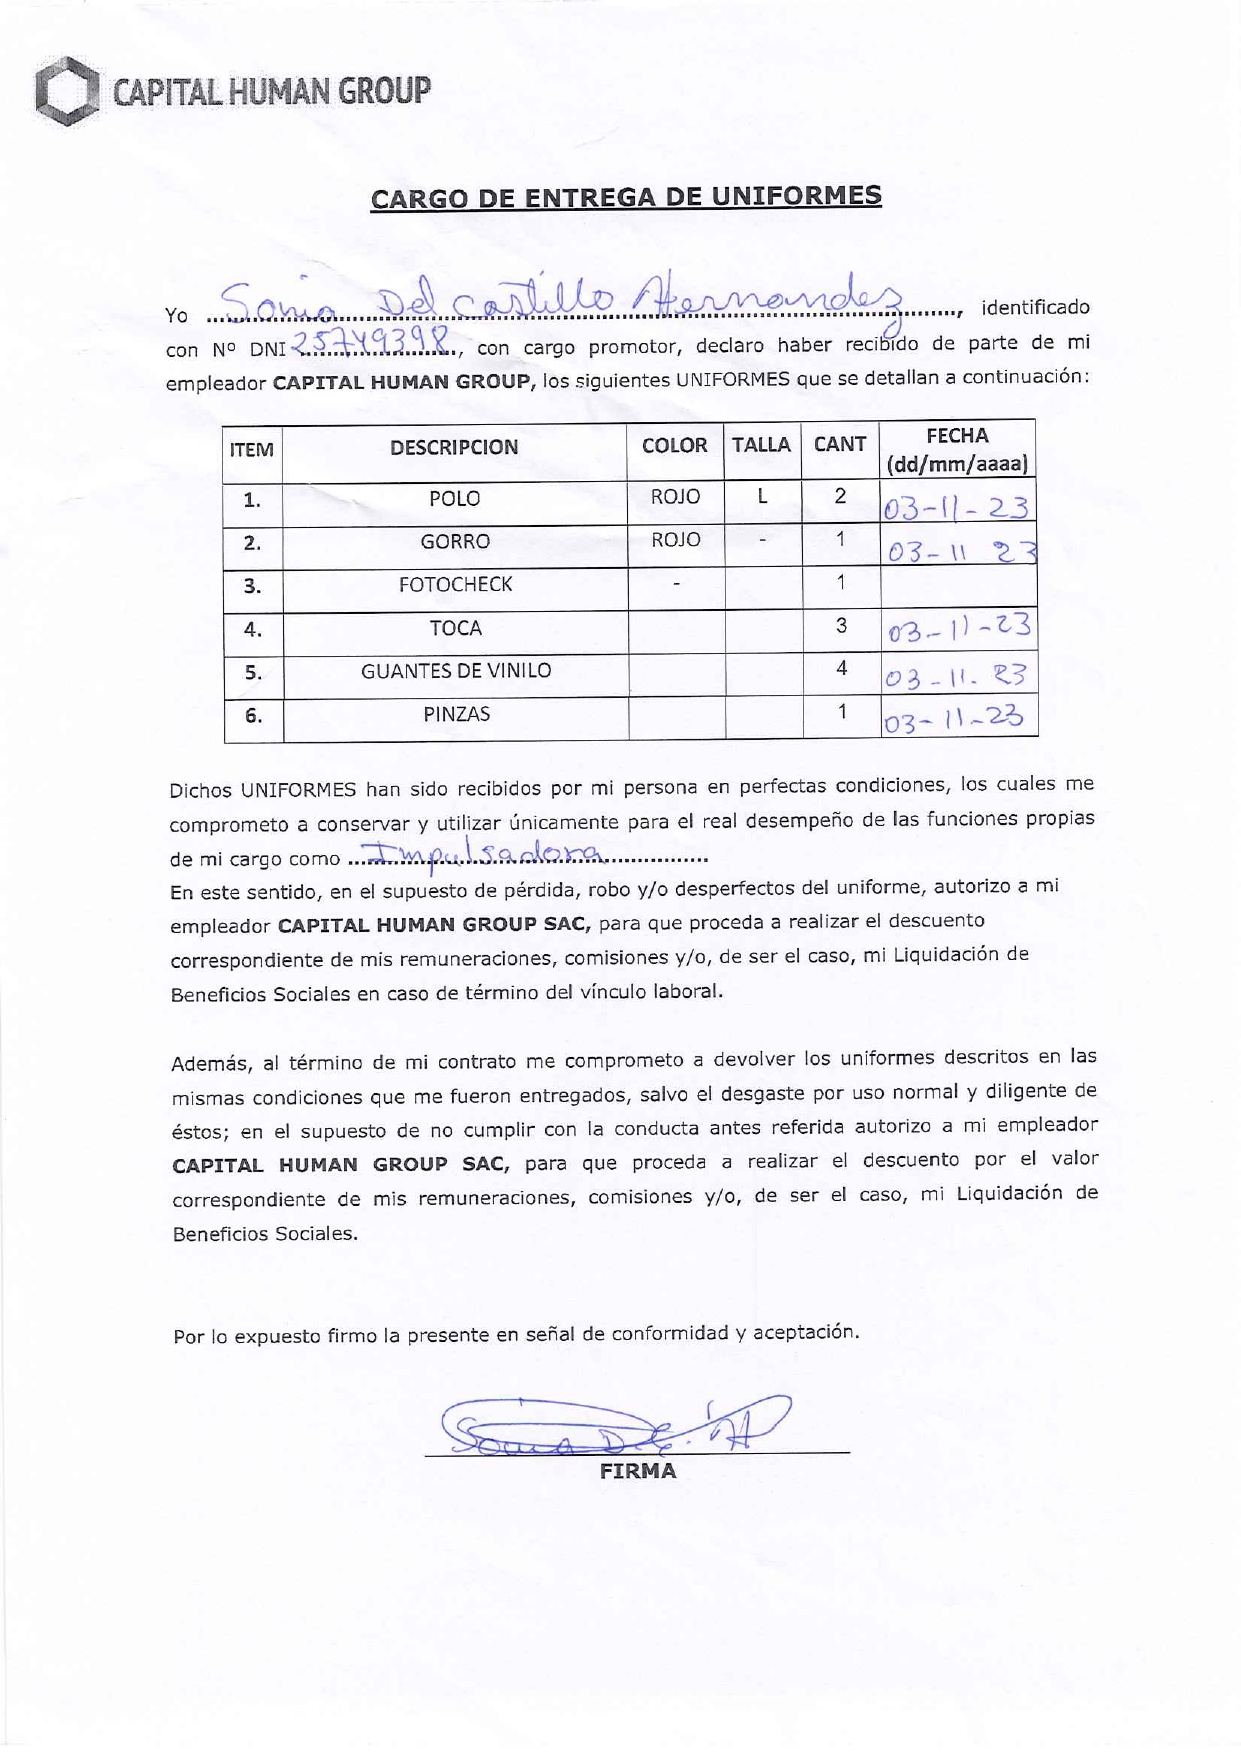 CAPITAL HUMAN GROUP
CARGO DE ENTREGA DE UNIFORMES
Yo Sonia Del Castillo Hernandez, identificado
con Nº DNI 25749398, con cargo promotor, declaro haber recibido de parte de mi
empleador CAPITAL HUMAN GROUP, los siguientes UNIFORMES que se detallan a continuación:
ITEM DESCRIPCION COLOR TALLA CANT FECHA (dd/mm/aaaa)
1. POLO ROJO L 2 03-11-23
2. GORRO ROJO - 1 03-11 23
3. FOTOCHECK - 1
4. TOCA 3 03-11-23
5. GUANTES DE VINILO 4 03-11-23
6. PINZAS 1 03-11-23
Dichos UNIFORMES han sido recibidos por mi persona en perfectas condiciones, los cuales me
comprometo a conservar y utilizar únicamente para el real desempeño de las funciones propias
de mi cargo como ...Impulsadora...
En este sentido, en el supuesto de pérdida, robo y/o desperfectos del uniforme, autorizo a mi
empleador CAPITAL HUMAN GROUP SAC, para que proceda a realizar el descuento
correspondiente de mis remuneraciones, comisiones y/o, de ser el caso, mi Liquidación de
Beneficios Sociales en caso de término del vínculo laboral.
Además, al término de mi contrato me comprometo a devolver los uniformes descritos en las
mismas condiciones que me fueron entregados, salvo el desgaste por uso normal y diligente de
éstos; en el supuesto de no cumplir con la conducta antes referida autorizo a mi empleador
CAPITAL HUMAN GROUP SAC, para que proceda a realizar el descuento por el valor
correspondiente de mis remuneraciones, comisiones y/o, de ser el caso, mi Liquidación de
Beneficios Sociales.
Por lo expuesto firmo la presente en señal de conformidad y aceptación.
Sonia D.C. H
FIRMA